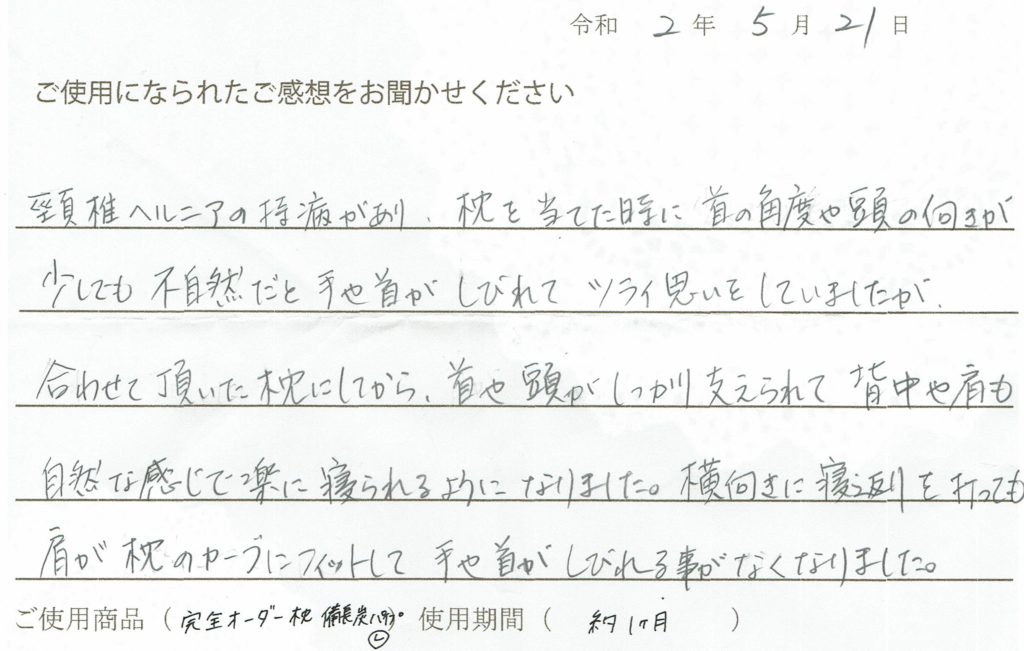 令和 2 年 5 月 21 日
ご使用になられたご感想をお聞かせください
頸椎ヘルニアの持病があり、枕を当てた時に首の角度や頭の向きが
少しでも不自然だと手や首がしびれてツライ思いをしていましたが、
合わせて頂いた枕にしてから、首や頭がしっかり支えられて背中や肩も
自然な感じで楽に寝られるようになりました。横向きに寝返りを打っても
肩が枕のカーブにフィットして手や首がしびれる事がなくなりました。
ご使用商品 ( 完全オーダー枕 備長炭パイプ Ⓛ 使用期間 ( 約1ヶ月 )